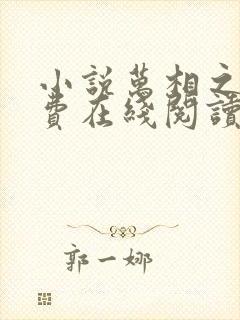 小說萬相之
費在綫閱讀
郭一娜